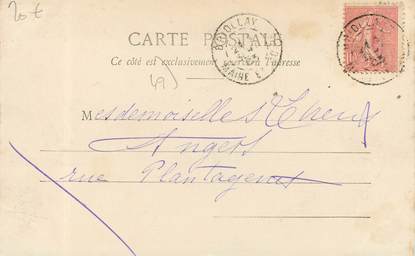 20€
CARTE POSTALE
Ce côté est exclusivement réservé à l'adresse
BRIOLLAY
MAINE ET
49
Mesdemoiselles
Angers
rue Plantagenet